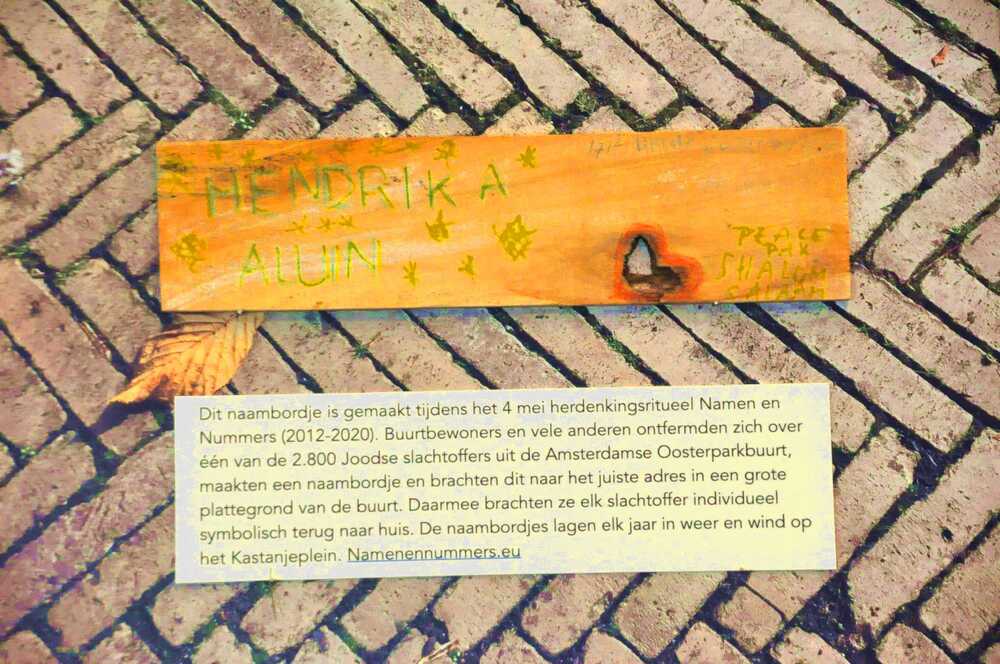 HENDRIKA
ALUIN
PEACE
PAX
SHALOM
SALAAM
Dit naambordje is gemaakt tijdens het 4 mei herdenkingsritueel Namen en
Nummers (2012-2020). Buurtbewoners en vele anderen ontfermden zich over
één van de 2.800 Joodse slachtoffers uit de Amsterdamse Oosterparkbuurt,
maakten een naambordje en brachten dit naar het juiste adres in een grote
plattegrond van de buurt. Daarmee brachten ze elk slachtoffer individueel
symbolisch terug naar huis. De naambordjes lagen elk jaar in weer en wind op
het Kastanjeplein. Namenennummers.eu